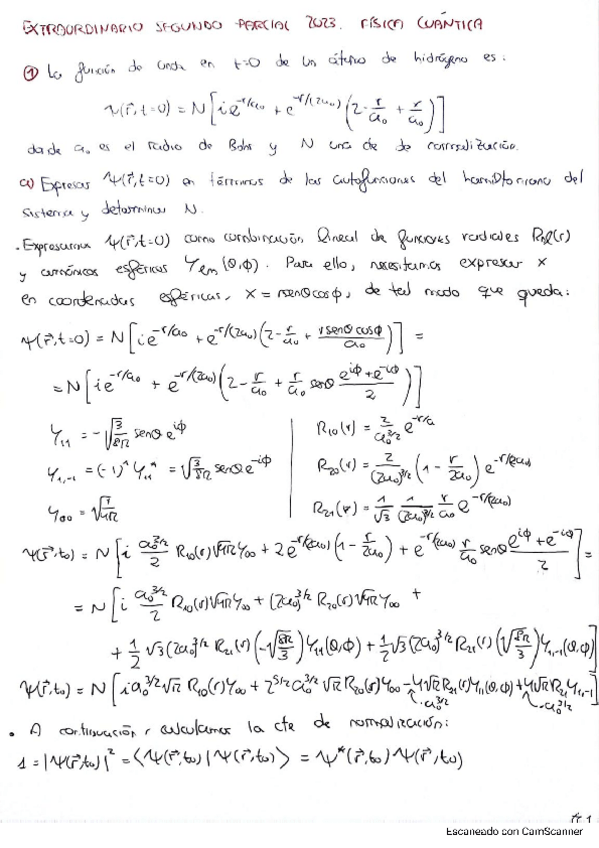 EXTRAORDINARIO SEGUNDO PARCIAL 2023. FÍSICA CUÁNTICA
① La función de onda en t=0 de un átomo de hidrógeno es:
ψ(r⃗,t=0) = N[ie^{-r/a₀} + e^{-r/(2a₀)}(2 - r/a₀ + r/a₀)]
donde a₀ es el radio de Bohr y N una cte de normalización.
a) Expresar Ψ(r⃗,t=0) en términos de las autofunciones del hamiltoniano del
sistema y determinar N.
· Expresamos Ψ(r⃗,t=0) como combinación lineal de funciones radiales Rnl(r)
y armónicos esféricos Yem(θ,φ). Para ello, necesitamos expresar x
en coordenadas esféricas, x = rsenθcosφ, de tal modo que queda:
Ψ(r⃗,t=0) = N[ie^{-r/a₀} + e^{-r/(2a₀)}(2 - r/a₀ + rsenθcosφ/a₀)] =
= N[ie^{-r/a₀} + e^{-r/(2a₀)}(2 - r/a₀ + r/a₀ senθ (e^{iφ}+e^{-iφ})/2)]
Y₁₁ = -√(3/8π) senθe^{iφ}
R₁₀(r) = 2/a₀^{3/2} e^{-r/a}
Y₁,₋₁ = (-1)¹ Y₁₁* = √(3/8π) senθe^{-iφ}
R₂₀(r) = 2/(2a₀)^{3/2} (1 - r/2a₀) e^{-r/(2a₀)}
Y₀₀ = √(1/4π)
R₂₁(r) = 1/√3 1/(2a₀)^{3/2} r/a₀ e^{-r/(2a₀)}
Ψ(r⃗,t₀) = N[i a₀^{3/2}/2 R₁₀(r)√4π Y₀₀ + 2e^{-r/(2a₀)}(1 - r/2a₀) + e^{-r/(2a₀)} r/a₀ senθ (e^{iφ}+e^{-iφ})/2] =
= N[i a₀^{3/2}/2 R₁₀(r)√4π Y₀₀ + (2a₀)^{3/2} R₂₀(r)√4π Y₀₀ +
+ 1/2 √3 (2a₀)^{3/2} R₂₁(r)(-√(8π/3)) Y₁₁(θ,φ) + 1/2 √3 (2a₀)^{3/2} R₂₁(r)(√(8π/3)) Y₁,₋₁(θ,φ)]
Ψ(r⃗,t₀) = N[ia₀^{3/2}√π R₁₀(r)Y₀₀ + 2^{5/2}a₀^{3/2}√π R₂₀(r)Y₀₀ - 4√π R₂₁(r)Y₁₁(θ,φ) + 4√π R₂₁Y₁,₋₁]
·a₀^{3/2} ·a₀^{3/2}
· A continuación, calculamos la cte de normalización:
1 = |Ψ(r⃗,t₀)|² = ⟨Ψ(r⃗,t₀)|Ψ(r⃗,t₀)⟩ = Ψ*(r⃗,t₀)Ψ(r⃗,t₀)
Escaneado con CamScanner